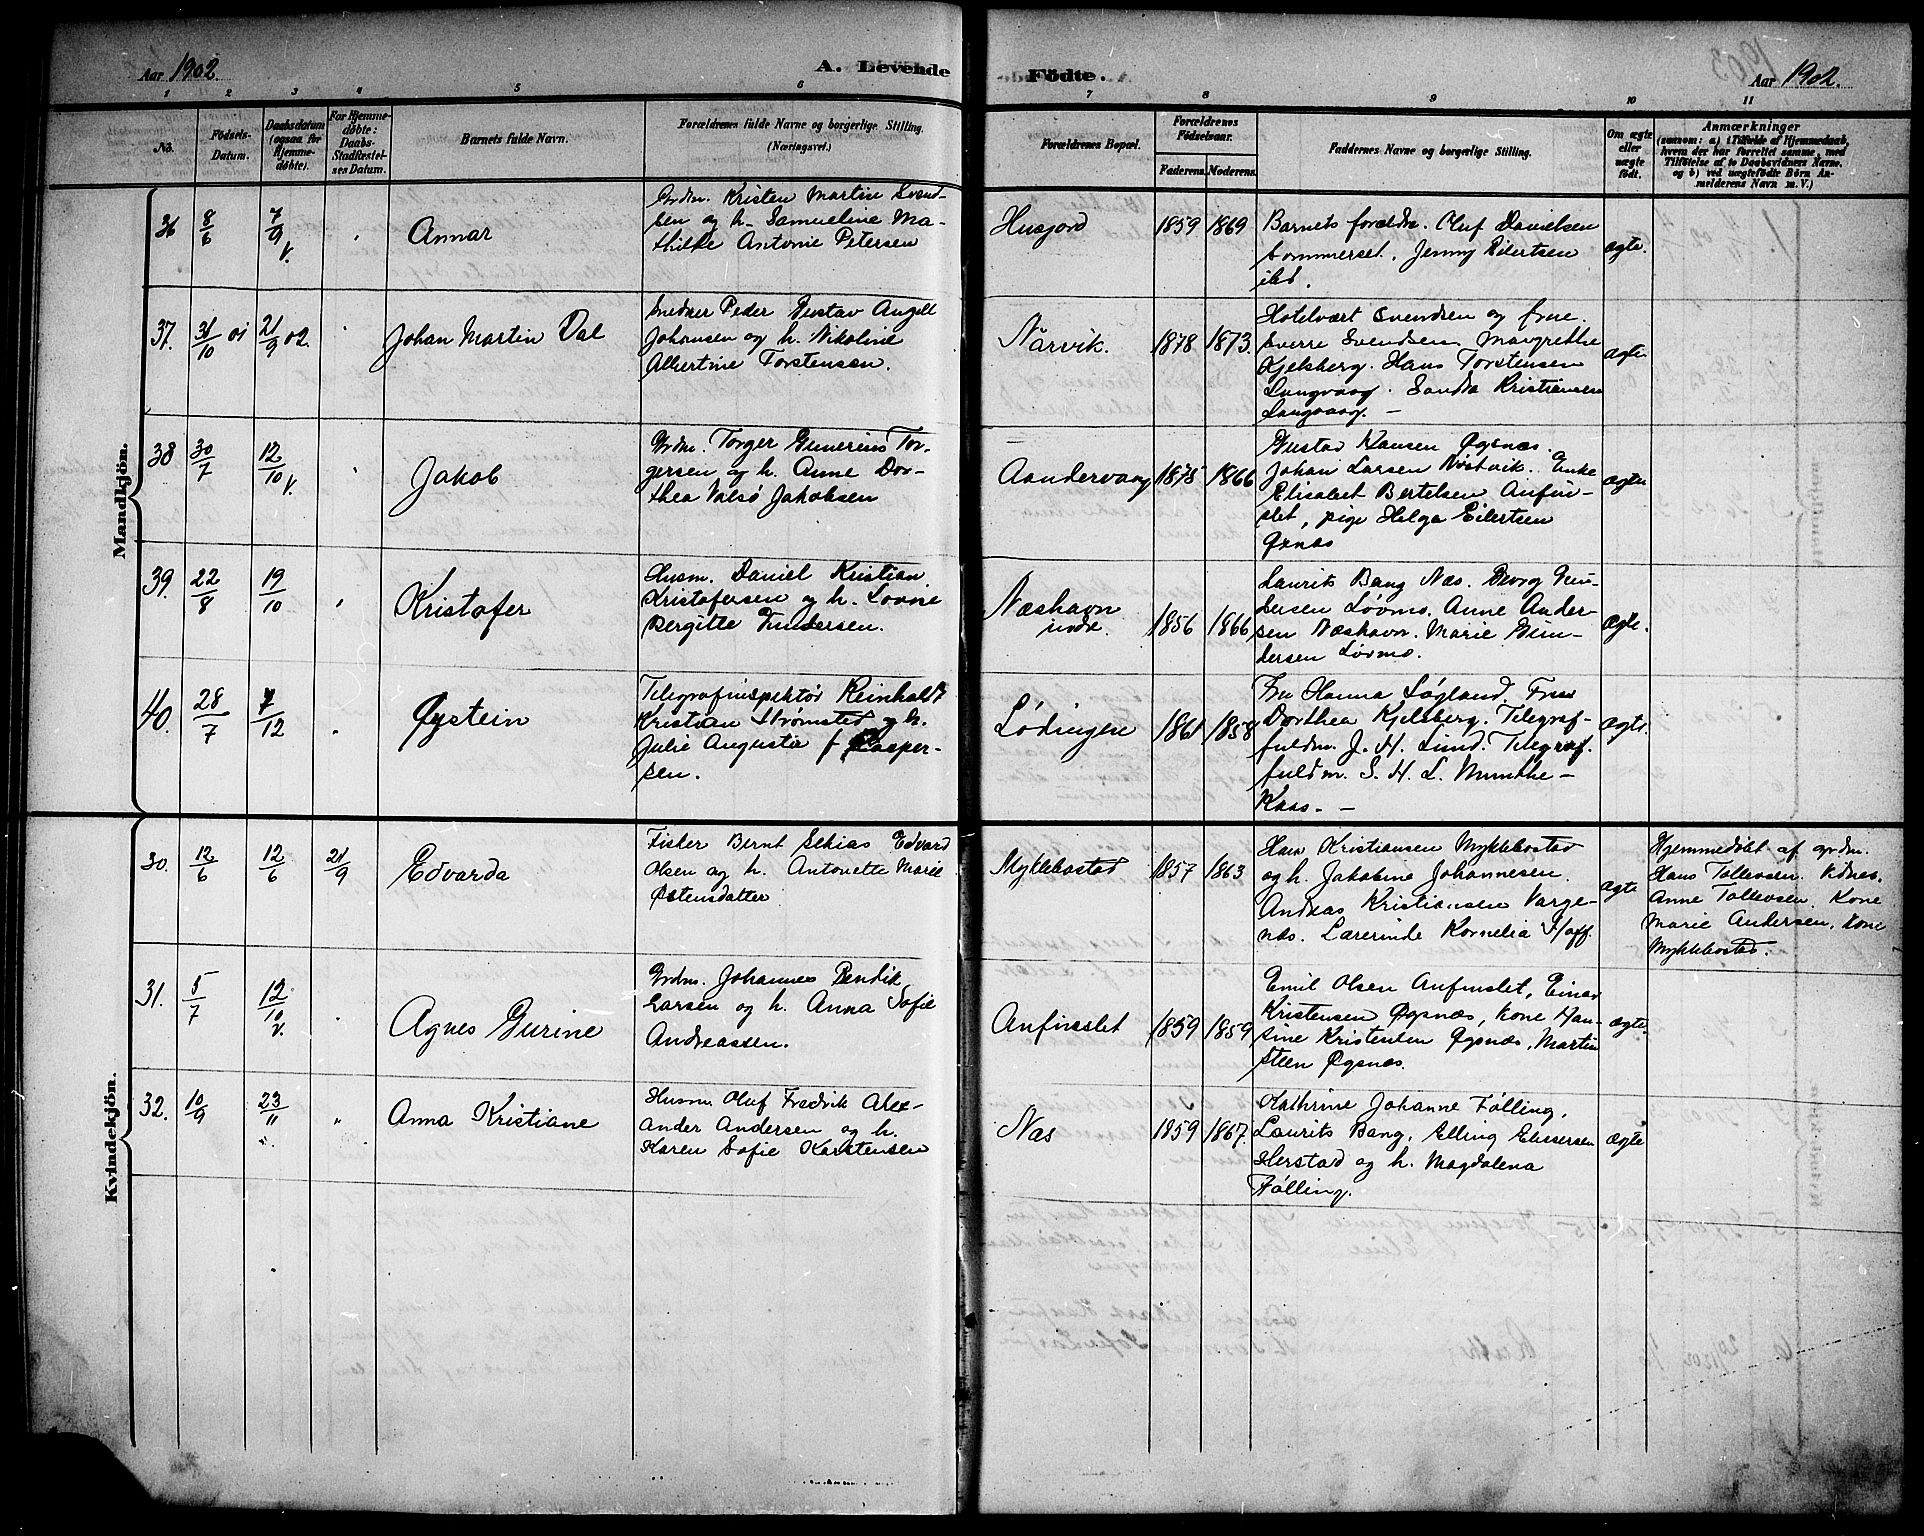 Aar 1902
A. Levende
Fødte.
Aar 1902.
1 2 3 4 5 6 7 8 9 10 11
No.
Fødsels-
Datum.
Daabsdatum
(ogsaa for
Hjemme-
døbte).
For Hjemme-
døbte:
Daabs-
Stadfæstel-
ses Datum.
Barnets fulde Navn.
Forældrenes fulde Navne og borgerlige Stilling.
(Næringsvei.)
Forældrenes Bopæl.
Forældrenes
Fødselsaar.
Faderens. Moderens.
Faddernes Navne og borgerlige Stilling.
Om ægte
eller
uægte
født.
Anmærkninger
(saasom: a) i Tilfælde af Hjemmedaab,
hvem der har forrettet samme, med
Tilføielse af to Daabsvidners Navne,
og b) ved uægtefødte Børn An-
melderens Navn m. V.)
Mandkjön.
36 8/6 7/9 v. " Annar
Grdm. Kristen Martin Svend-
sen og h. Samueline Ma-
thilde Antonie Petersen
Husjord 1859 1869
Barnets forældre. Oluf Danielsen
Sommerset. Jenny Eilertsen
ibd.
ægte.
37. 31/10 01 21/9 02. " Johan Martin Dal
Snedker Peder Gustav Angell
Johansen og h. Nikoline
Albertine Torstensen.
Narvik. 1878 1873.
Hotelvært Svendsen og frue.
Sverre Svendsen, Margrethe
Kjelsberg. Hans Torstensen
Langvaag. Sandra Kristiansen
Langvaag. —
ægte
38 30/7 12/10 v. " Jakob
Grdm. Torger Gunerius Tor-
gersen og h. Anne Dor-
thea Valsø Jakobsen
Aandervaag 1875 1866
Gustav Hansen Øgsnæs.
Johan Larsen Næstvik. Enke
Elisabet Bertelsen Anfin-
slet, pige Helga Eilertsen
Øxnæs
ægte
39. 22/8 19/10 " Kristofer
Husm. Daniel Kristian
Kristofersen og h. Lovne
Bergitte Gundersen.
Næshavn
indre. 1856 1866
Laurits Bang Næs. Georg Gun-
dersen Løvmo. Anne Ander-
sen Næshavn. Marie Gun-
dersen Løvmo.
ægte.
40. 28/7 7/12 " Øystein
Telegrafinspektør Reinholdt
Kristian Strømsted og h.
Julie Augusta f. Casper-
sen.
Lødingen 1861 1858
Fru Hanna Løgland. Frue
Dorthea Kjelsberg. Telegraf-
fuldm. J. H. Lund. Telegraf.
fuldm. S. H. L. Munthe-
Kaas. —
ægte.
Kvindekjön.
30. 12/6 12/6 21/9 Edvarda
Fisker Bernt Sekias Edvard
Olsen og h. Antonette Marie
Østensdatter
Myklebostad 1857 1863
Hans Kristiansen Myklebostad
og h. Jakobine Johannesen.
Andreas Kristiansen Varge-
næs. Lærerinde Kornelia Hoff.
ægte
Hjemmedøbt af grdm.
Hans Tollevsen. Vidner.
Anne Tollevsen. Kone
Marie Andersen, kone
Myklebostad.
31. 5/7 12/10 v. " Agnes Gurine
Grdm. Johannes Bendik
Larsen og h. Anna Sofie
Andreassen.
Anfinslet 1859 1859
Emil Olsen Anfinslet, Einar
Kristensen Øgsnæs, kone Han-
sine Kristensen Øgsnæs, Martin
Steen Øgsnæs.
ægte
32. 10/9 23/11 " Anna Kristiane
Husm. Oluf Fredrik Alex-
ander Andersen og h.
Karen Sofie Karstensen
Næs 1859 1867.
Kathrine Johanne Følling.
Laurits Bang, Elling Eliesersen
Herstad og h. Magdalena
Følling.
ægte